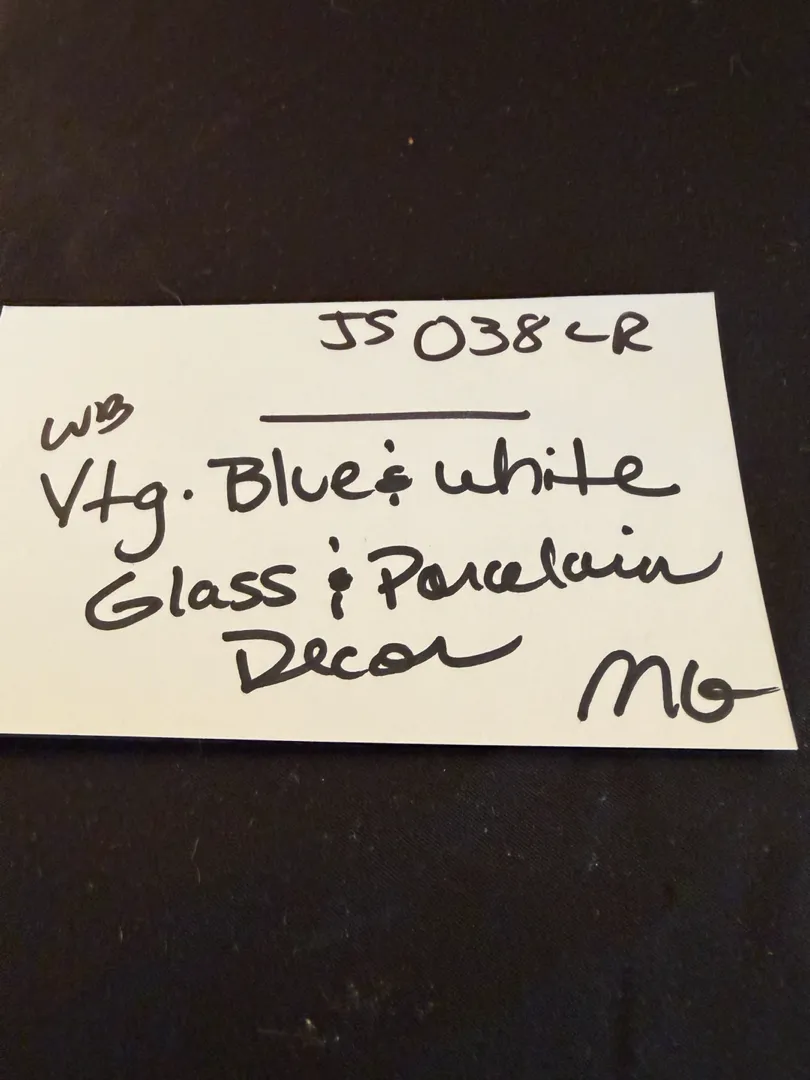 JS 038 LR
WB
Vtg. Blue & white
Glass & Porcelain
Decor
MG